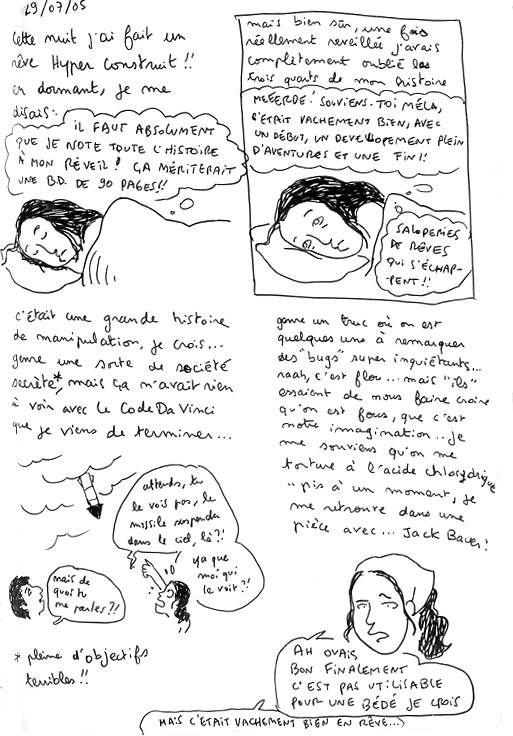 29/07/05
Cette nuit j'ai fait un
rêve Hyper Construit !!
en dormant, je me
disais:
IL FAUT ABSOLUMENT
QUE JE NOTE TOUTE L'HISTOIRE
À MON RÉVEIL! ÇA MÉRITERAIT
UNE B.D. DE 90 PAGES!!
mais bien sûr, une fois
réellement reveillée j'avais
complètement oublié les
trois quarts de mon histoire
MEEERDE! SOUVIENS-TOI MÉLA,
C'ÉTAIT VACHEMENT BIEN, AVEC
UN DÉBUT, UN DEVELLOPEMENT PLEIN
D'AVENTURES ET UNE FIN!!
SALOPERIES
DE RÊVES
QUI S'ÉCHAP-
PENT!!
c'était une grande histoire
de manipulation, je crois...
genre une sorte de société
secrète*, mais ça n'avait rien
à voir avec le Code Da Vinci
que je viens de terminer...
genre un truc où on est
quelques uns à remarquer
des "bugs" super inquiétants...
raah, c'est flou... mais "ils"
essaient de nous faire croire
qu'on est fous, que c'est
notre immagination... Je
me souviens qu'on me
torture à l'acide chlorydrique
"pis à un moment, je
me retrouve dans une
pièce avec... Jack Bauer!
attends, tu
le vois pas, le
missile suspendu
dans le ciel, là?!
ya que
moi qui
le voit?!
mais de
quoi tu
me parles?!
* pleine d'objectifs
terribles!!
AH OUAIS,
BON FINALEMENT
C'EST PAS UTILISABLE
POUR UNE BÉDÉ JE CROIS
MAIS C'ÉTAIT VACHEMENT BIEN EN RÊVE...